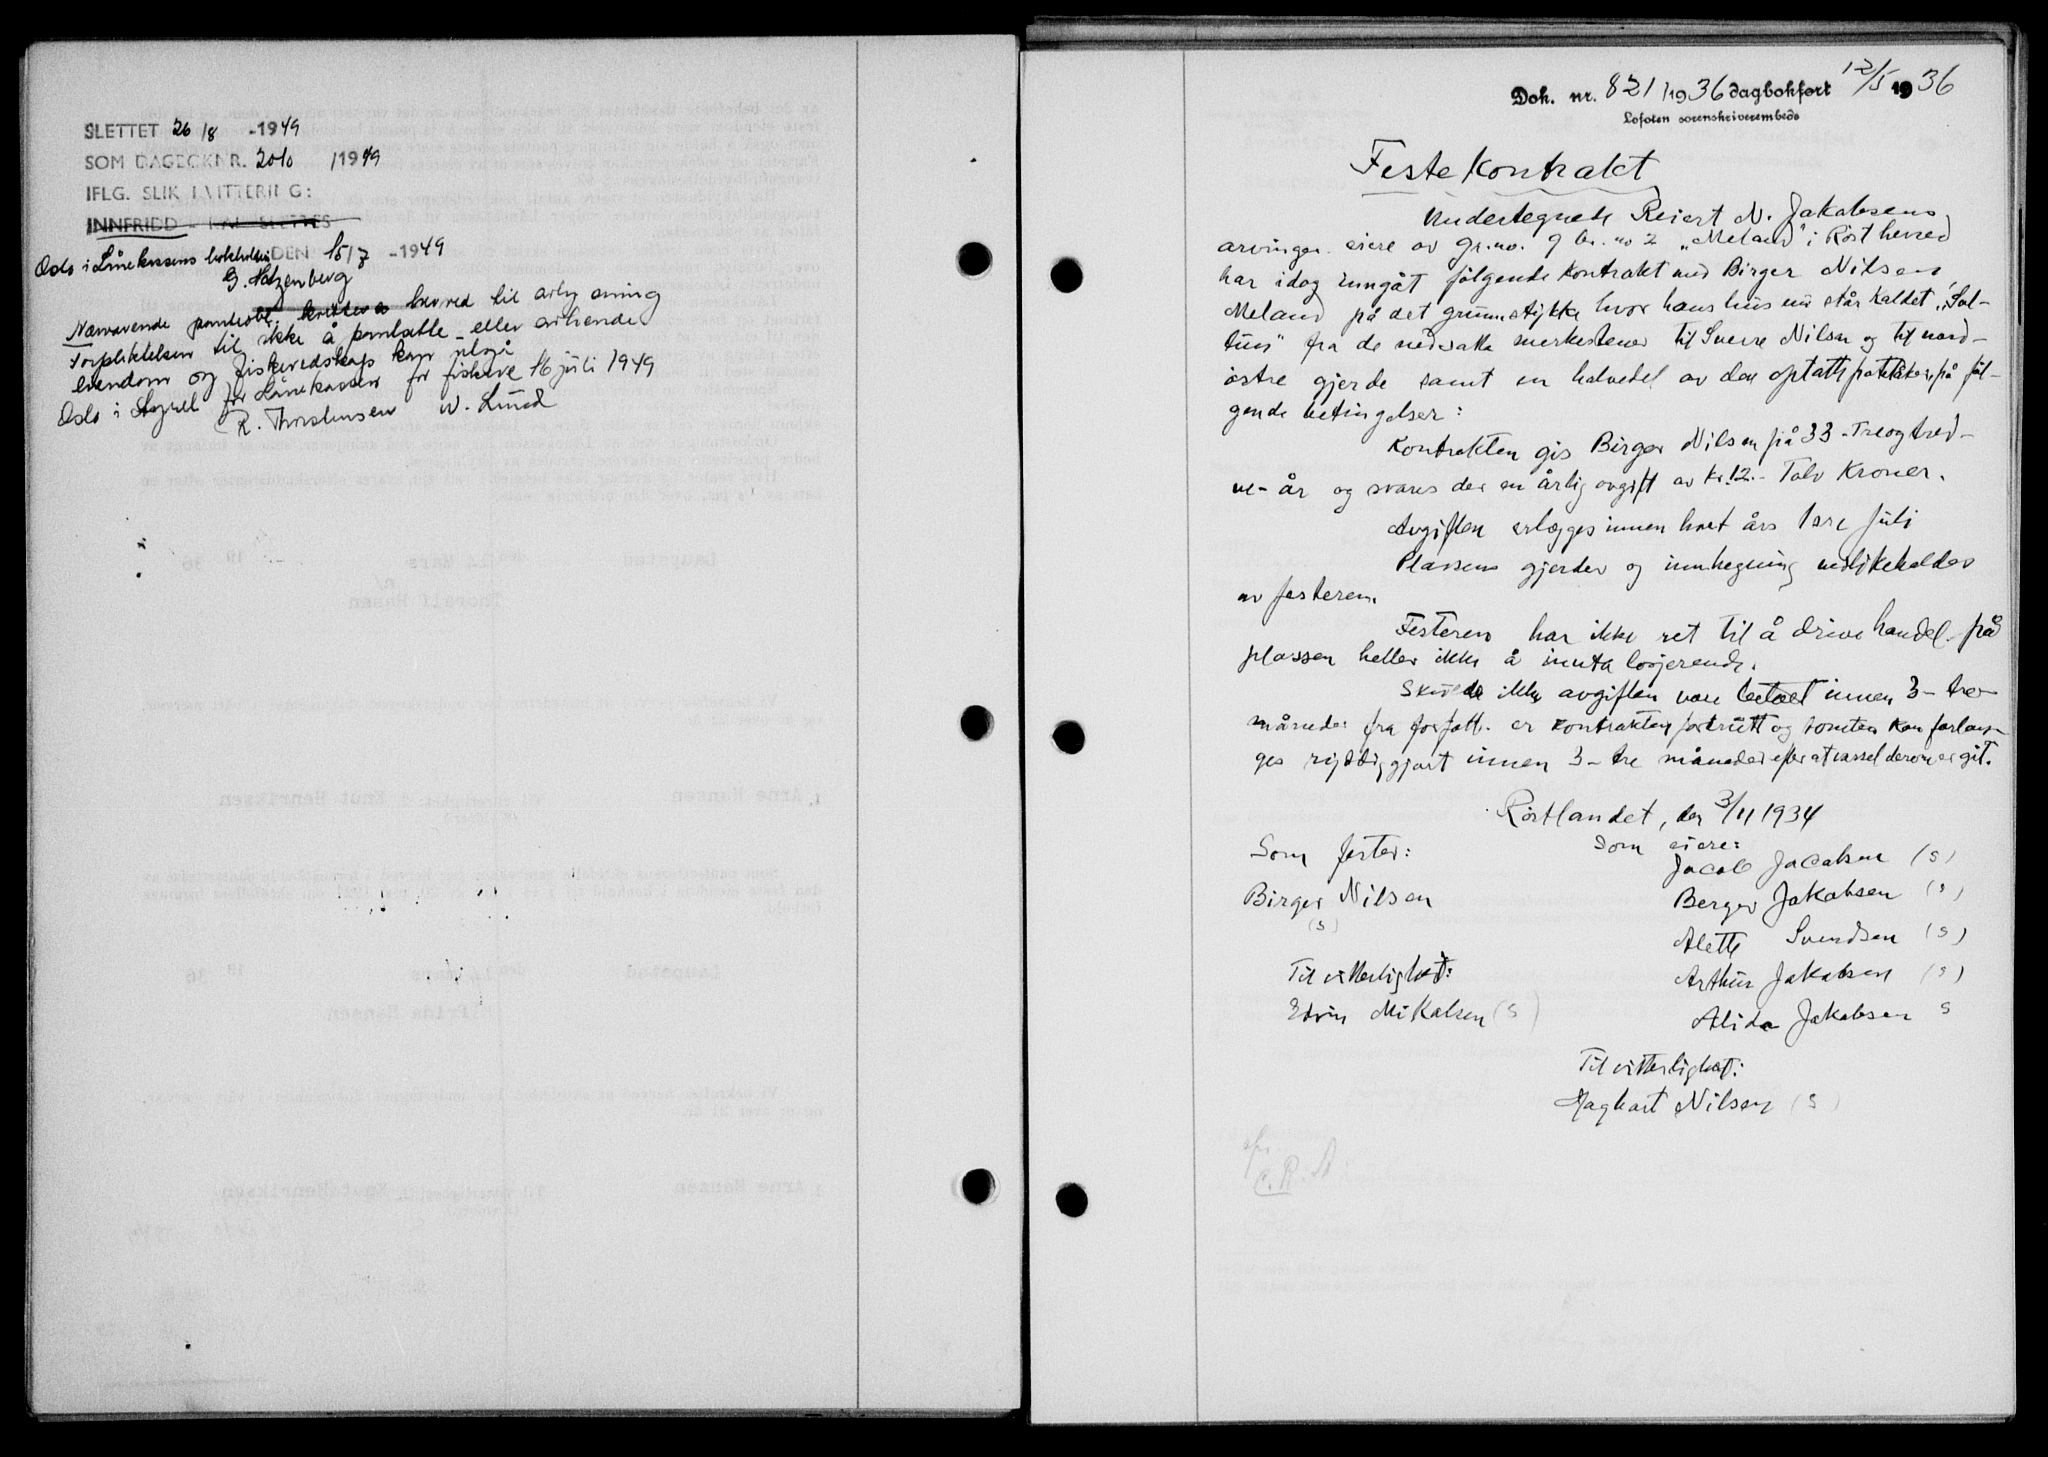 SLETTET 26/8 -1949
SOM DAGBOKNR. 2010 /1949
IFLG. SLIK KVITTERING:
INNFRIDD - KAN SLETTES
Oslo i Lånekassens bokholderi DEN 15/7 -1949
G. Hatzenberg
Nærværende pantobl. kvitteres herved til avlysning
Forpliktelsen til ikke å pantsette eller avhende
eiendom og fiskeredskap kan utgå
Oslo i Styret for Lånekassen for fiskere 16 juli 1949
R. Thorstensen W. Lund
Dok. nr. 821/1936 dagbokført 12/5 1936
Lofoten sorenskriverembede
Festekontrakt
Undertegnede Reiert N. Jakobsens
arvinger eiere av gr.no. 9 br.no 2 „Meland" i Röst herred
har idag inngåt fölgende kontrakt med Birger Nilsen
Meland på det grunnstykke hvor hans hus nu står kaldet „Sol-
tun" fra de nedsatte merkestener til Sverre Nilsen og til nord-
östre gjerde samt en halvedel av den optatte potetåker, på föl-
gende betingelser:
Kontrakten gis Birger Nilsen på 33 - Treogtred-
ve - år og svares der en årlig avgift av kr. 12.- Tolv Kroner.
Avgiften erlegges innen hvert års 1ste juli
Plassens gjerder og innhegning vedlikeholdes
av festeren.
Festeren har ikke ret til å drive handel på
plassen heller ikke å innta losjerende.
Skulde ikke avgiften være betalt innen 3 - tre
måneder fra forfall. er kontrakten forbrutt og tomten kan forlan-
ges ryddiggjort innen 3 - tre måneder efter at varsel derom er git.
Röstlandet, den 3/11 1934
Som fester:
Som eiere:
Jacob Jacobsen (s)
Birger Nilsen
(s)
Berger Jakobsen (s)
Alette Svendsen (s)
Til vitterlighet:
Arthur Jakobsen (s)
Edvin Mikalsen (s)
Alida Jakobsen s
Til vitterlighet:
Maghart Nilsen (s)
C.R.A